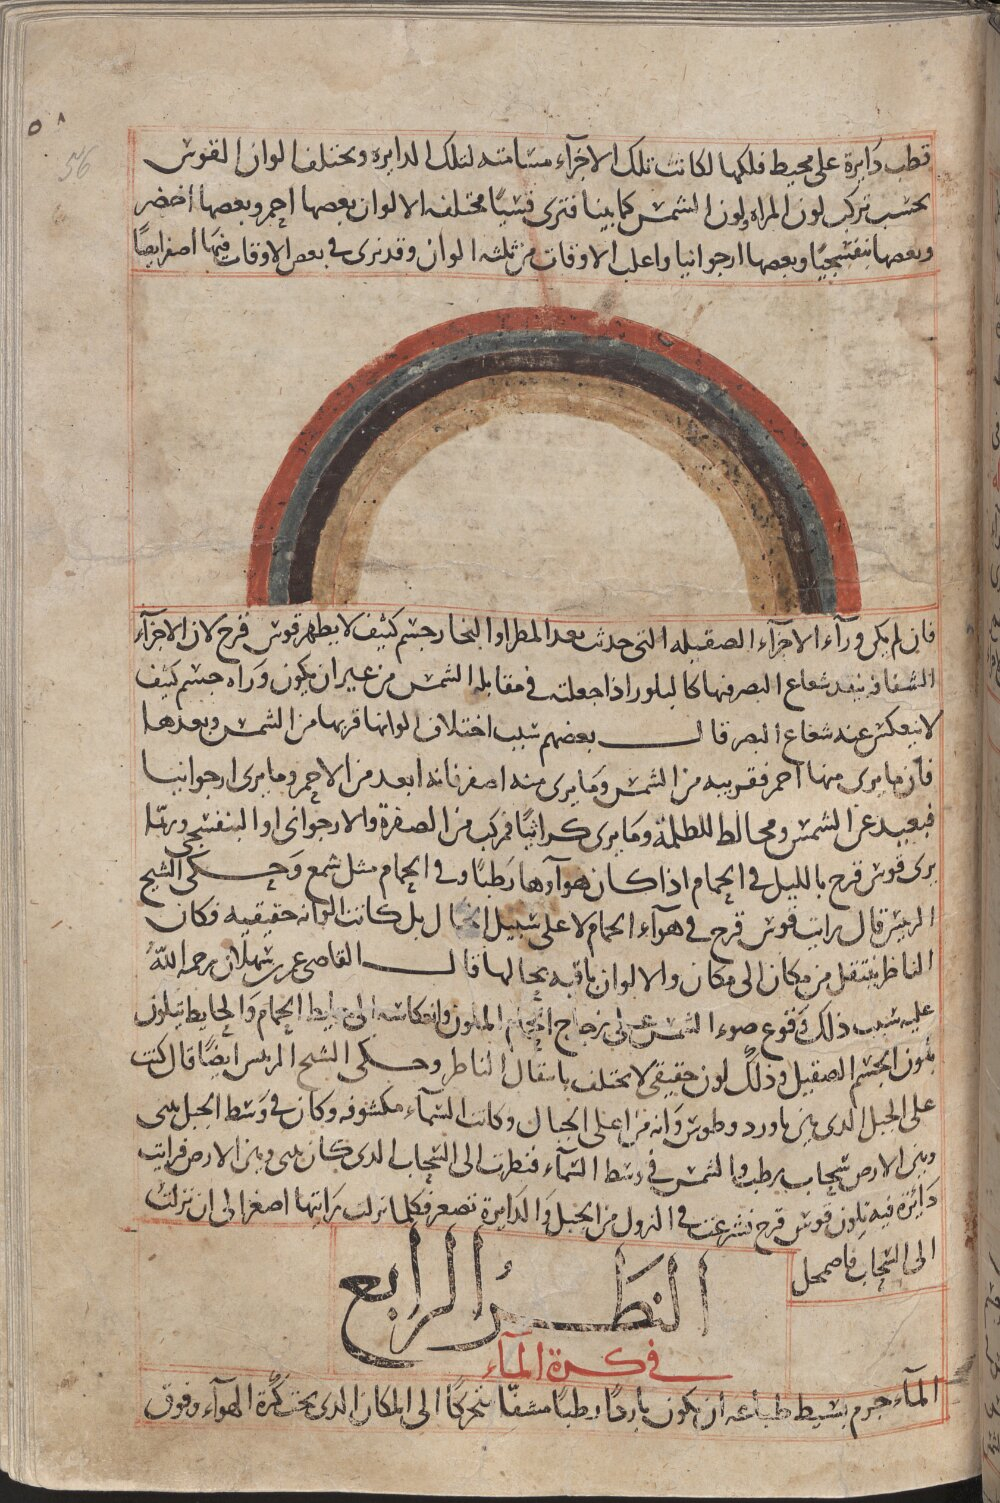 ٥٨
56
قطب دايرة على محيط فلكها لكانت تلك الاجزآء مسامته لتلك الدايره ويختلف الوان القوس
بحسب تركب لون المراه ولون الشمس كما بينا فترى قسيًا مختلفه الالوان بعضها احمر وبعضها اخضر
وبعضها بنفسجيًا وبعضها ارجوانيا واغلب الاوقات من ثلثه الوان وقد نرى في بعض الاوقات فيها اصفر ايضًا
فان لم يكن ورآء الاجزآء الصقيله التى حدثت بعد المطر او البخار جسم كثيف لا يظهر قوس قزح لان الاجزآء
الشفافه ينفد شعاع البصر فيها كالبلور اذا جعلته في مقابله الشمس من غير ان يكون وراه جسم كثيف
لا ينعكس عنه شعاع البصر قال بعضهم سبب اختلاف الوانها قربها من الشمس وبعدها
فان ما يرى منها احمر فقريبه من الشمس وما يرى منه اصفر فانه ابعد من الاحمر وما يرى ارجوانيا
فبعيد عن الشمس ومخالط للظلمة وما يرى كراثيًا فمركب من الصفرة والارجوانى او البنفسجى وربّما
يرى قوس قزح بالليل في الحمام اذا كان هوآوها رطبًا وفي الحمام مثل شمع وحكى الشيخ
الرييس قال رايت قوس قزح في هوآء الحمام لا على سبيل الخيال بل كانت الوانه حقيقيه فكان
الناظر ينتقل من مكان الى مكان والالوان باقيه بحالها قال القاضى عمر بن سهلان رحمه اللّه
عليه سبب ذلك وقوع ضوء الشمس على زجاج الحمام الملون وانعكاسه الى حايط الحمام والحايط يتلون
بلون الجسم الصقيل وذلك لون حقيقى لا يختلف بانتقال الناظر وحكى الشيخ الرييس ايضًا قال كنت
على الجبل الذى بين باورد وطوس وانه من اعلى الجبال وكانت السمآء مكشوفه وكان في وسط الجبل بينى
وبين الارض سحاب رطب والشمس في وسط السمآء فنظرت الى السحاب الذى كان بينى وبين الارض فرايت
دائرة فيه بلون قوس قزح فشرعت في النزول من الجبل والدايرة تصغر فكلما نزلت رايتها اصغر الى ان نزلت
الى السحاب فاضمحل
النظر الرابع
في كرة المآء
المآء جرم بسيط طباعه ان يكون باردًا رطبًا مشفًا متحركًا الى المكان الذى تحت كرة الهوآء وفوق